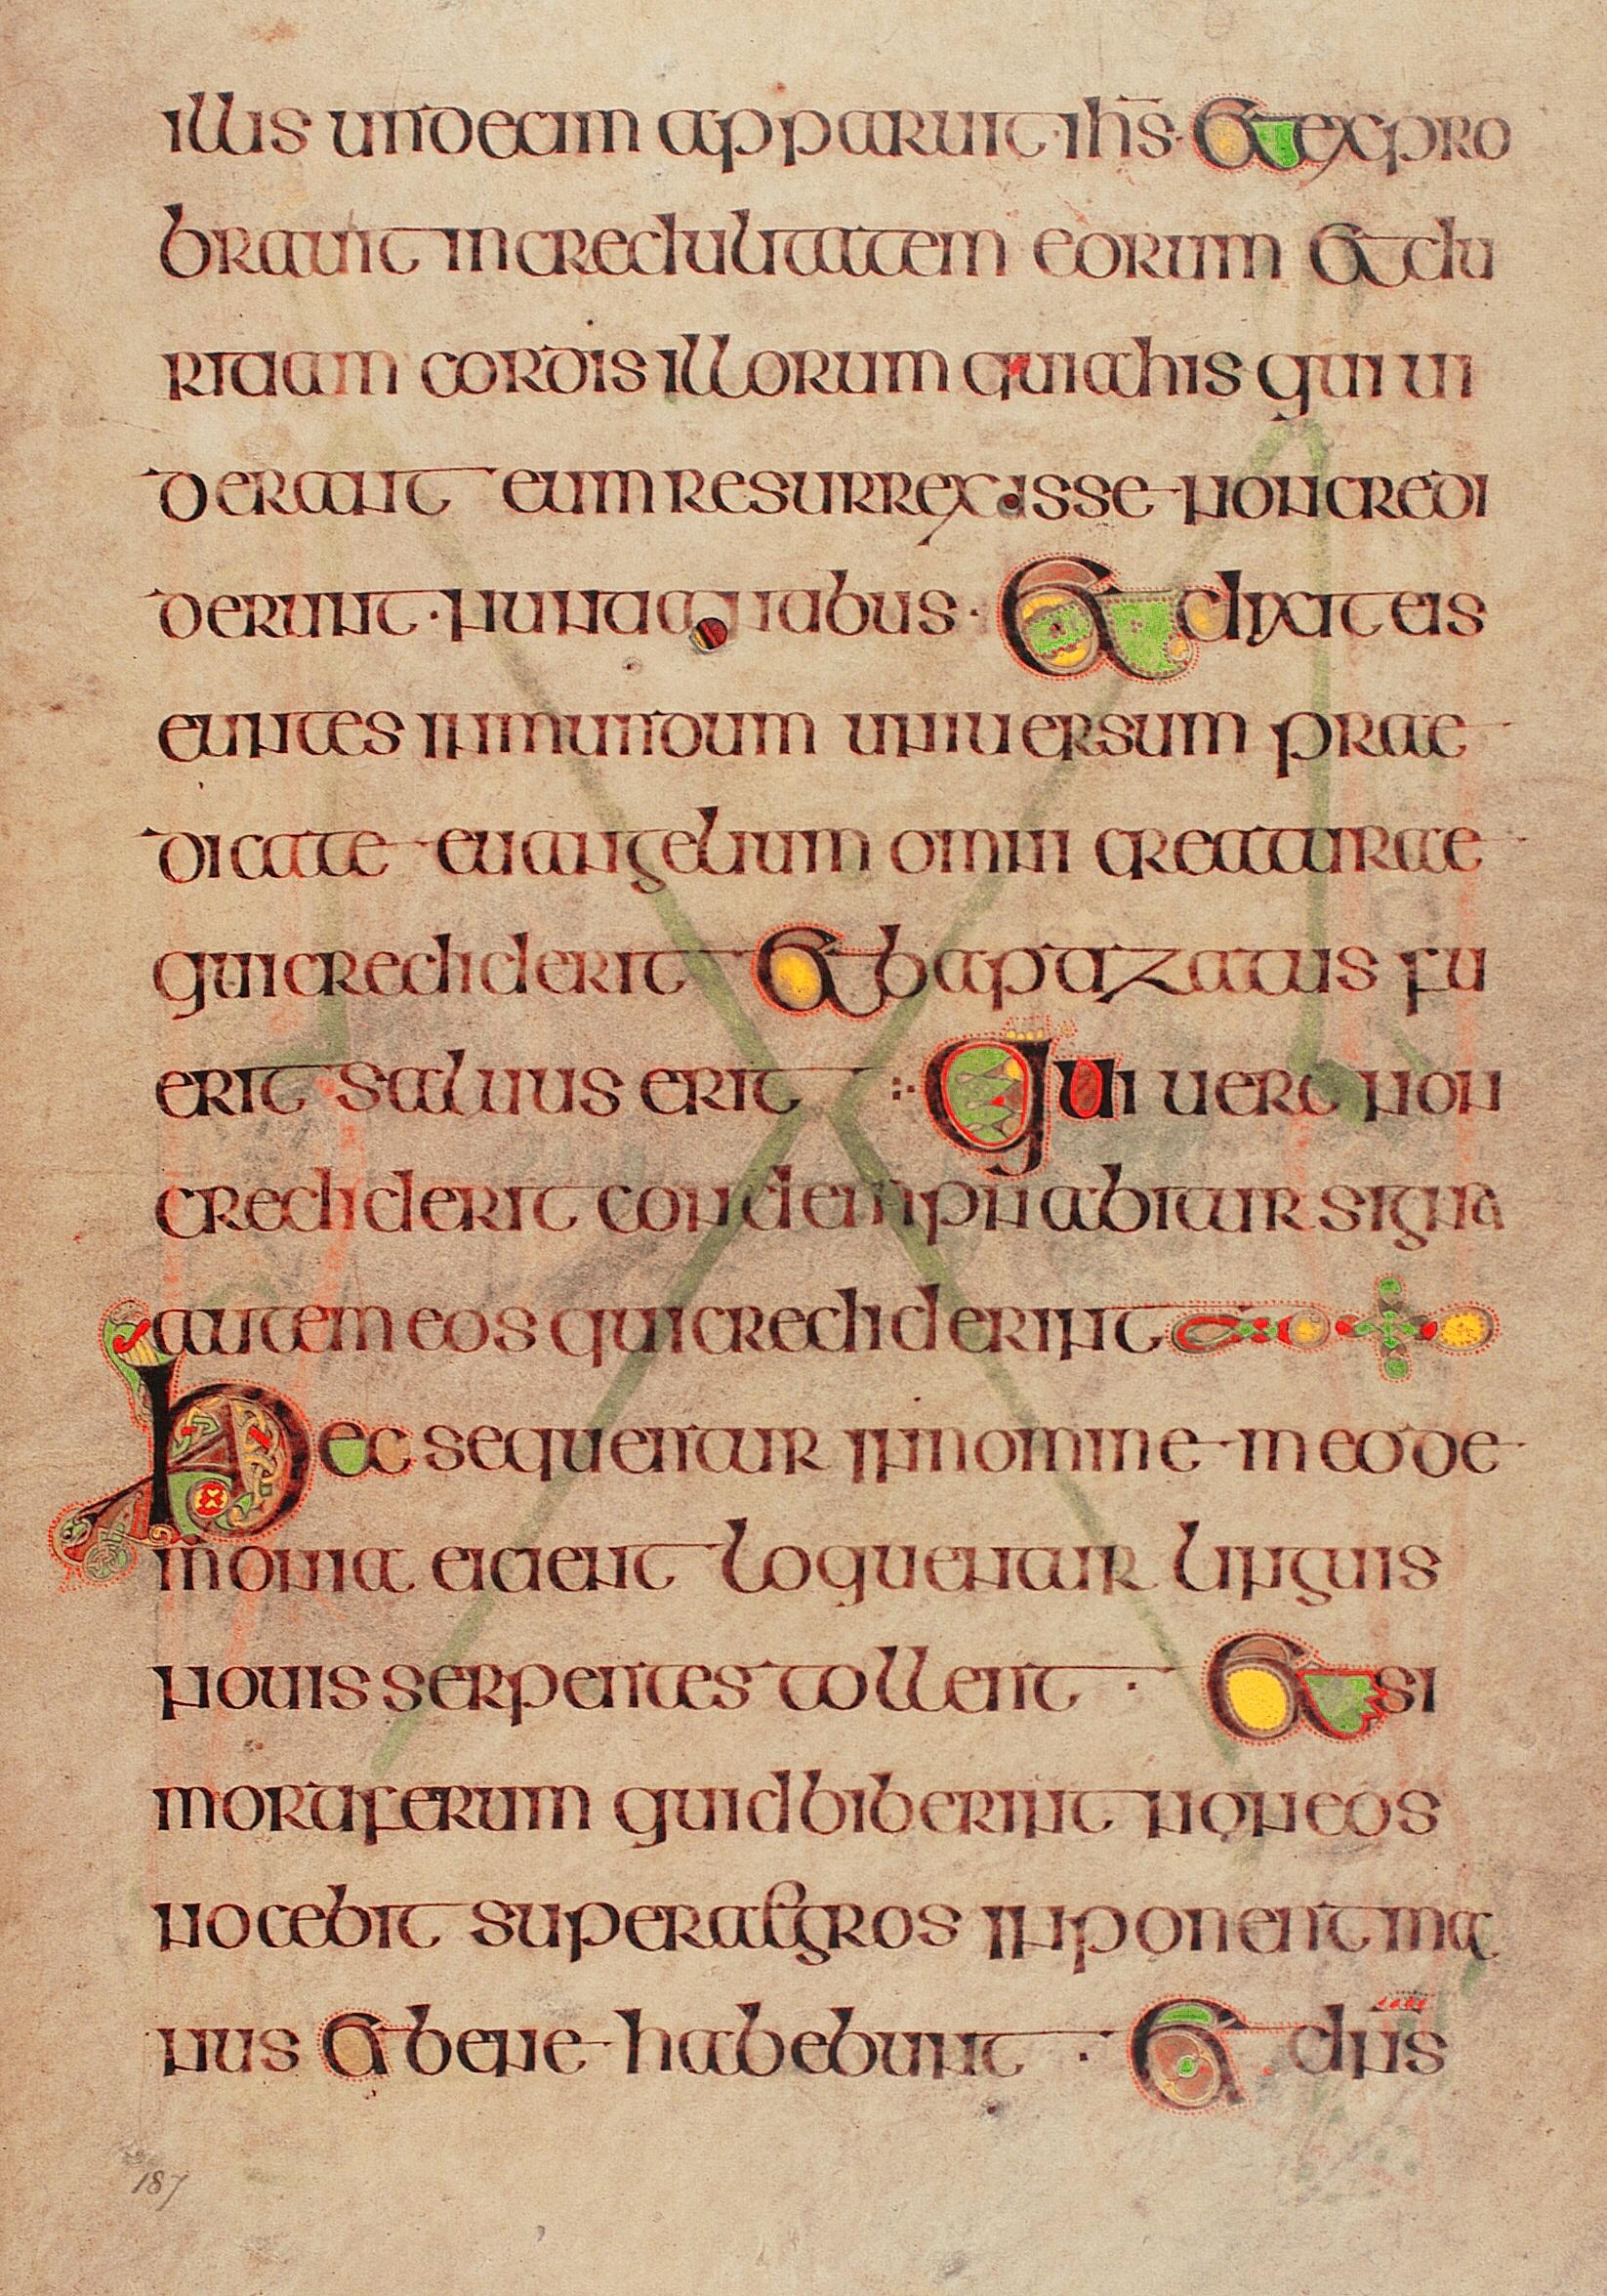 illis undecim apparuit· ihs̄· Et expro
brauit incredulitatem eorum et du
ritiam cordis illorum quia his qui ui
derant eum resurrexisse non credi
derunt· nuntiantibus· Et dixit eis
euntes in mundum uniuersum prae
dicate euangelium omni creaturae
qui crediderit et baptizatus fu
erit saluus erit :· Qui uero non
crediderit condempnabitur signa
autem eos qui crediderint
Hec sequentur in nomine meo de
monia eicient loquentur linguis
nouis serpentes tollent · Et si
mortiferum quid biberint non eos
nocebit super aegros inponent ma
nus et bene habebunt · Et dn̄s
187